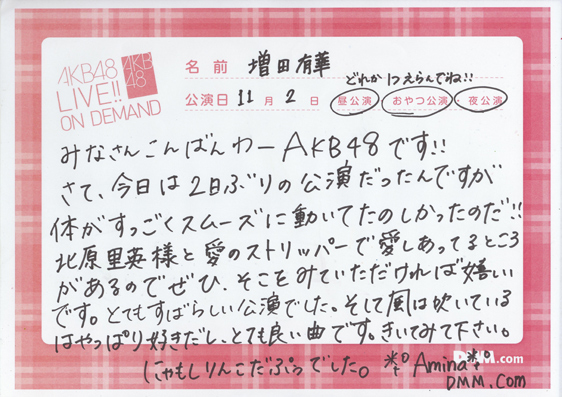 AKB48
LIVE!!
ON DEMAND
AKB
48
名前 増田有華
どれか1つえらんでね!!
公演日 11月2日 昼公演・おやつ公演・夜公演
みなさんこんばんわーAKB48です!!
さて、今日は2日ぶりの公演だったんですが
体がすっごくスムーズに動いてたのしかったのだ!!
北原里英様と愛のストリッパーで愛しあってるところ
があるのでぜひ、そこをみていただければ嬉しい
です。とてもすばらしい公演でした。そして風は吹いている
はやっぱり好きだし、とても良い曲です。きいてみて下さい。
にゃもしりんこだぷっでした。 Amina
DMM.com
DMM.com